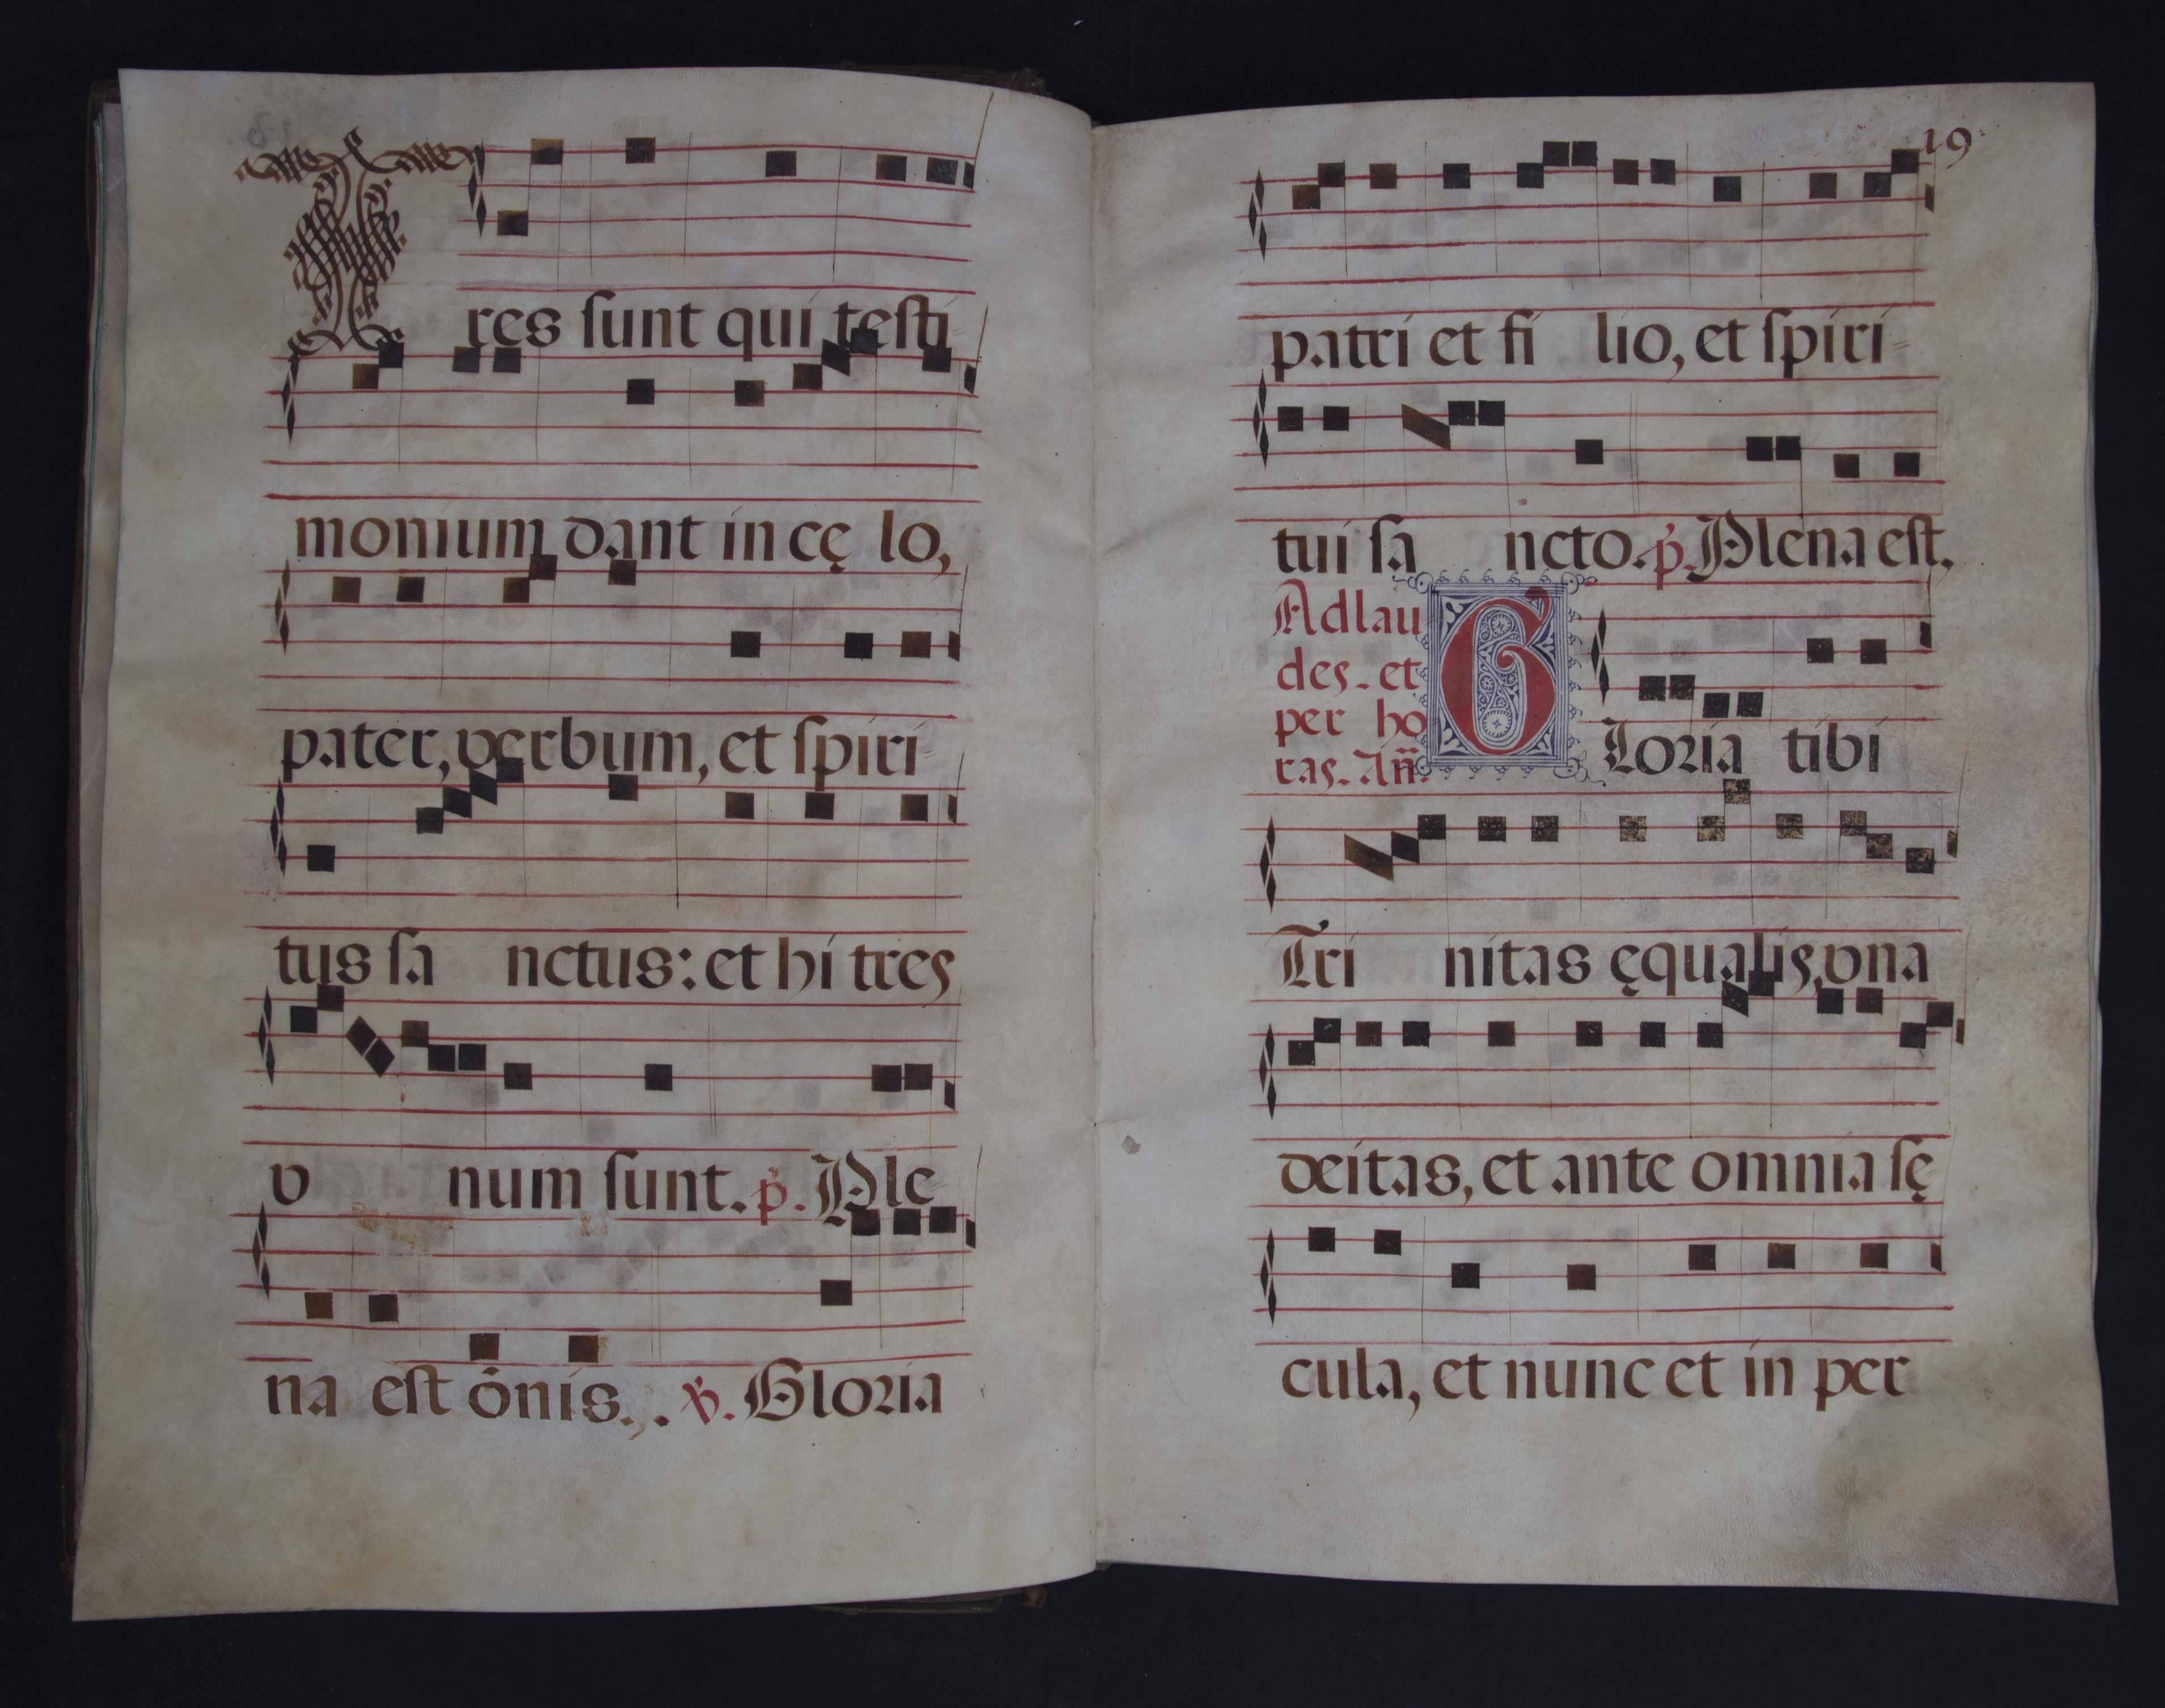 Tres sunt qui testi
monium dant in cę lo,
pater, verbum, et spiri
tus sa nctus: et hi tres
v num sunt. p̄. Ple
na est ōnis. . ℣. Gloria
19
patri et fi lio, et spiri
tui sa ncto. p̄. Plena est.
Ad lau
des. et
per ho
ras. Añ.
Gloria tibi
Tri nitas ęqualis, vna
deitas, et ante omnia sę
cula, et nunc et in per